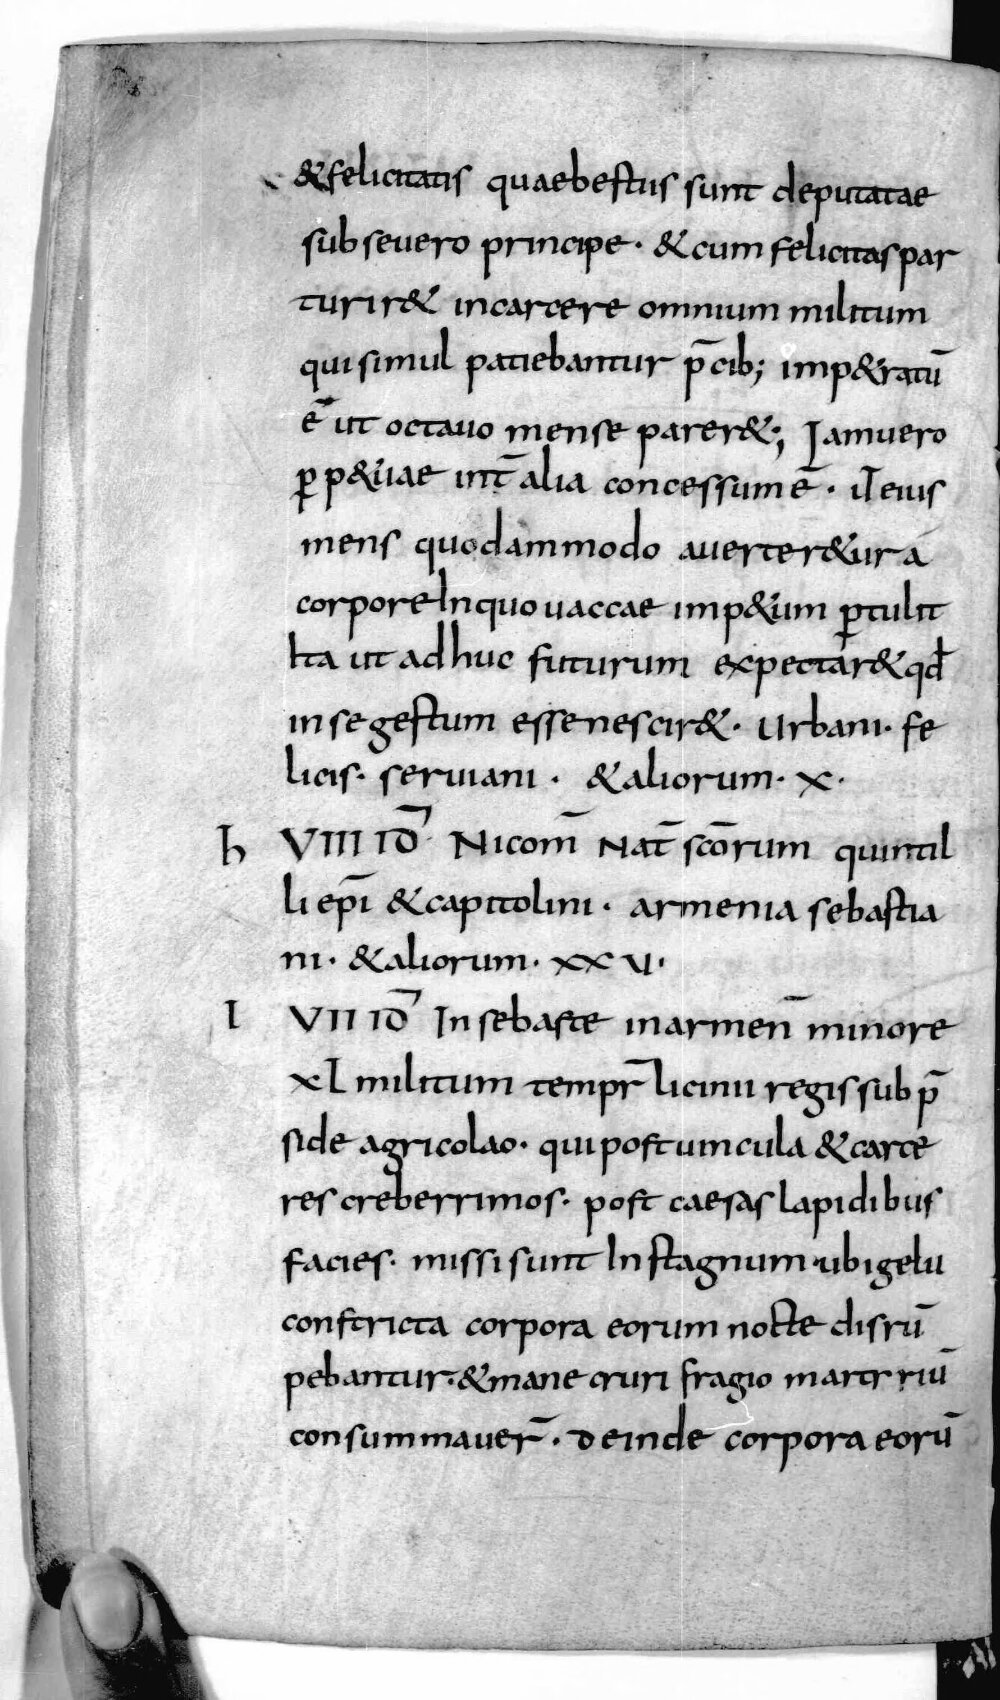 &felicitatis quaebestiis sunt deputatae
subseuero principe · &cum felicitas par
turir& incarcere omnium militum
qui simul patiebantur p̄cib; imp&ratū
ē ut octauo mense parer&; Iamuero
ꝑp&uae int̄ alia concessum ē · ut̄ eius
mens quodammodo auerter&ur a
corpore Inquo uaccae imp&um ꝑtulit
Ita ut adhuc futurum expectar& qd̄
inse gestum esse nescir& · Urbani · fe
licis · seruiani · &aliorum · X ·
h VIII ID̄ Nicom̄ Nat̄ scōrum quintil
li ep̄i &capitolini · armenia sebastia
ni · &aliorum · XXV ·
I VII ID̄ In sebaste inarmen̄ minore
XL militum tempr̄ licinii regis sub p̄
side agricolao · qui post uincula &carce
res creberrimos · post caesas lapidibus
facies · missi sunt In stagnum · ubi gelu
constricta corpora eorum nocte disrū
pebantur · &mane cruri fragio martyriū
consummauer̄ · deinde corpora eorū